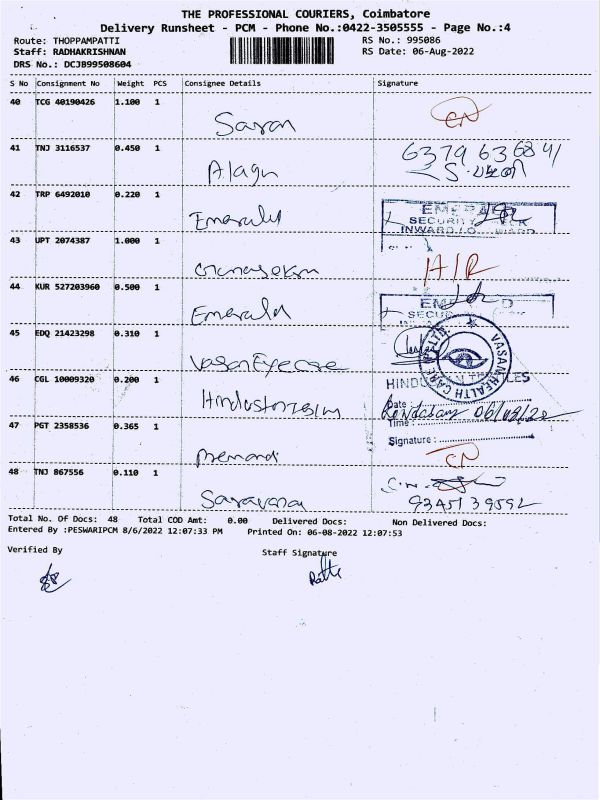 THE PROFESSIONAL COURIERS, Coimbatore
Delivery Runsheet - PCM - Phone No.:0422-3505555 - Page No.:4
Route: THOPPAMPATTI RS No.: 995086
Staff: RADHAKRISHNAN RS Date: 06-Aug-2022
DRS No.: DCJB99508604
S No Consignment No Weight PCS Consignee Details Signature
40 TCG 40190426 1.100 1 Saran CN
41 TNJ 3116537 0.450 1 Alagu 6379 636841
42 TRP 6492010 0.220 1 Emerald
SECURITY
INWARD
43 UPT 2074387 1.000 1 Gunasekaran
44 KUR 527203960 0.500 1 Emerald
45 EDQ 21423298 0.310 1 Vasan Eye care VASAN HEALTH CARE
46 CGL 10009320 0.200 1
Date :
06/08/22
Time :
47 PGT 2358536 0.365 1
Signature :
CN
48 TNJ 867556 0.110 1 Saravana
9345139592
Total No. Of Docs: 48 Total COD Amt: 0.00 Delivered Docs: Non Delivered Docs:
Entered By :PESWARIPCM 8/6/2022 12:07:33 PM Printed On: 06-08-2022 12:07:53
Verified By Staff Signature